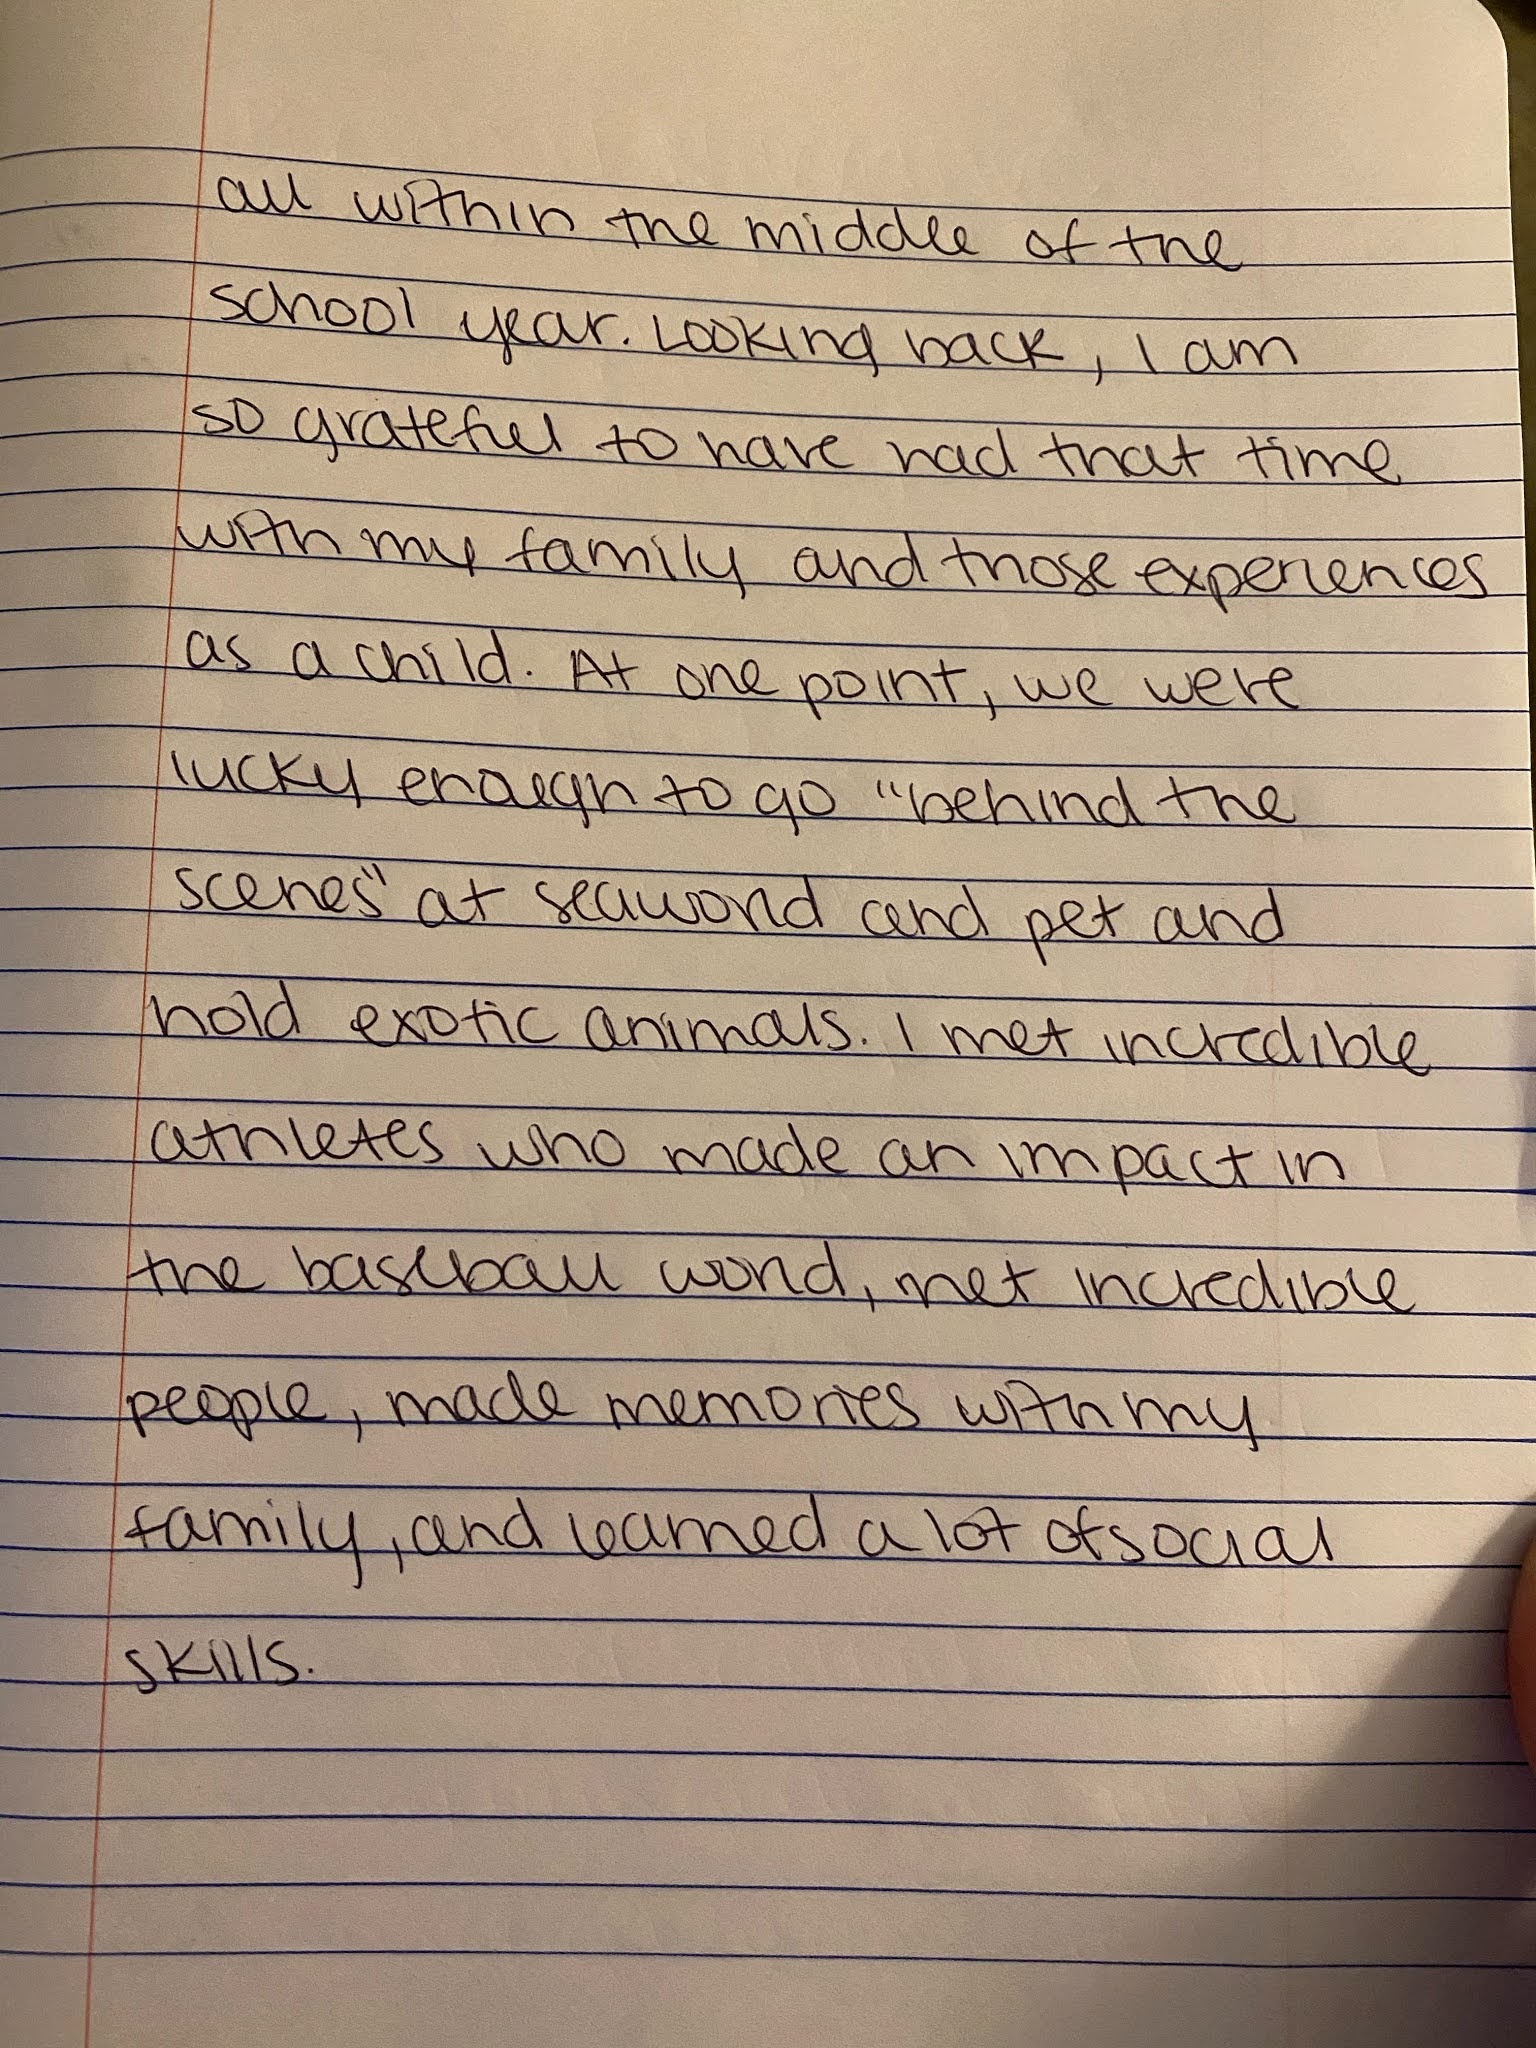 all within the middle of the
school year. Looking back, I am
so grateful to have had that time
with my family and those experiences
as a child. At one point, we were
lucky enough to go "behind the
scenes" at seaworld and pet and
hold exotic animals. I met incredible
athletes who made an impact in
the baseball world, met incredible
people, made memories with my
family, and learned a lot of social
skills.